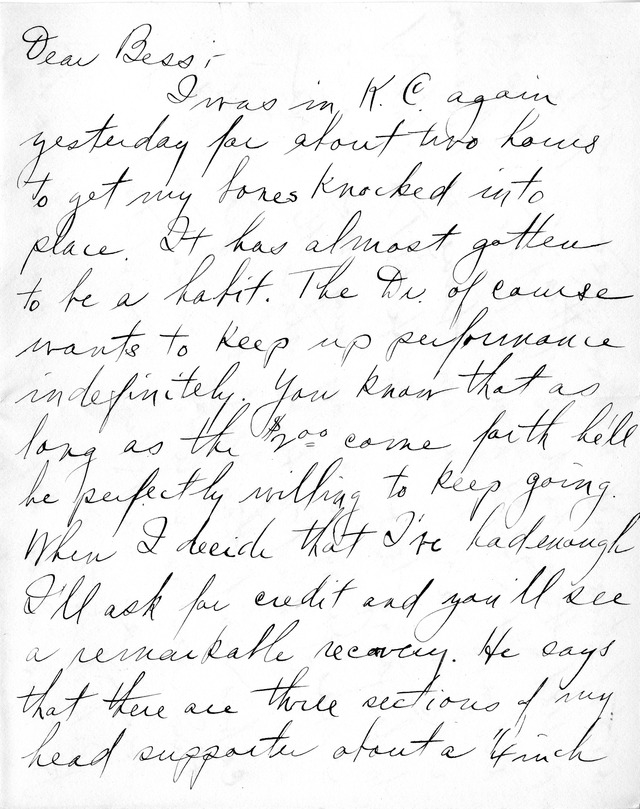 Dear Bess;-
I was in K. C. again
yesterday for about two hours
to get my bones knocked into
place. It has almost gotten
to be a habit. The Dr. of course
wants to keep up performance
indefinitely. You know that as
long as the $2.00 come forth he'll
be perfectly willing to keep going.
When I decide that I've had enough
I'll ask for credit and you'll see
a remarkable recovery. He says
that there are three sections of my
head supporter about a 1/4 inch